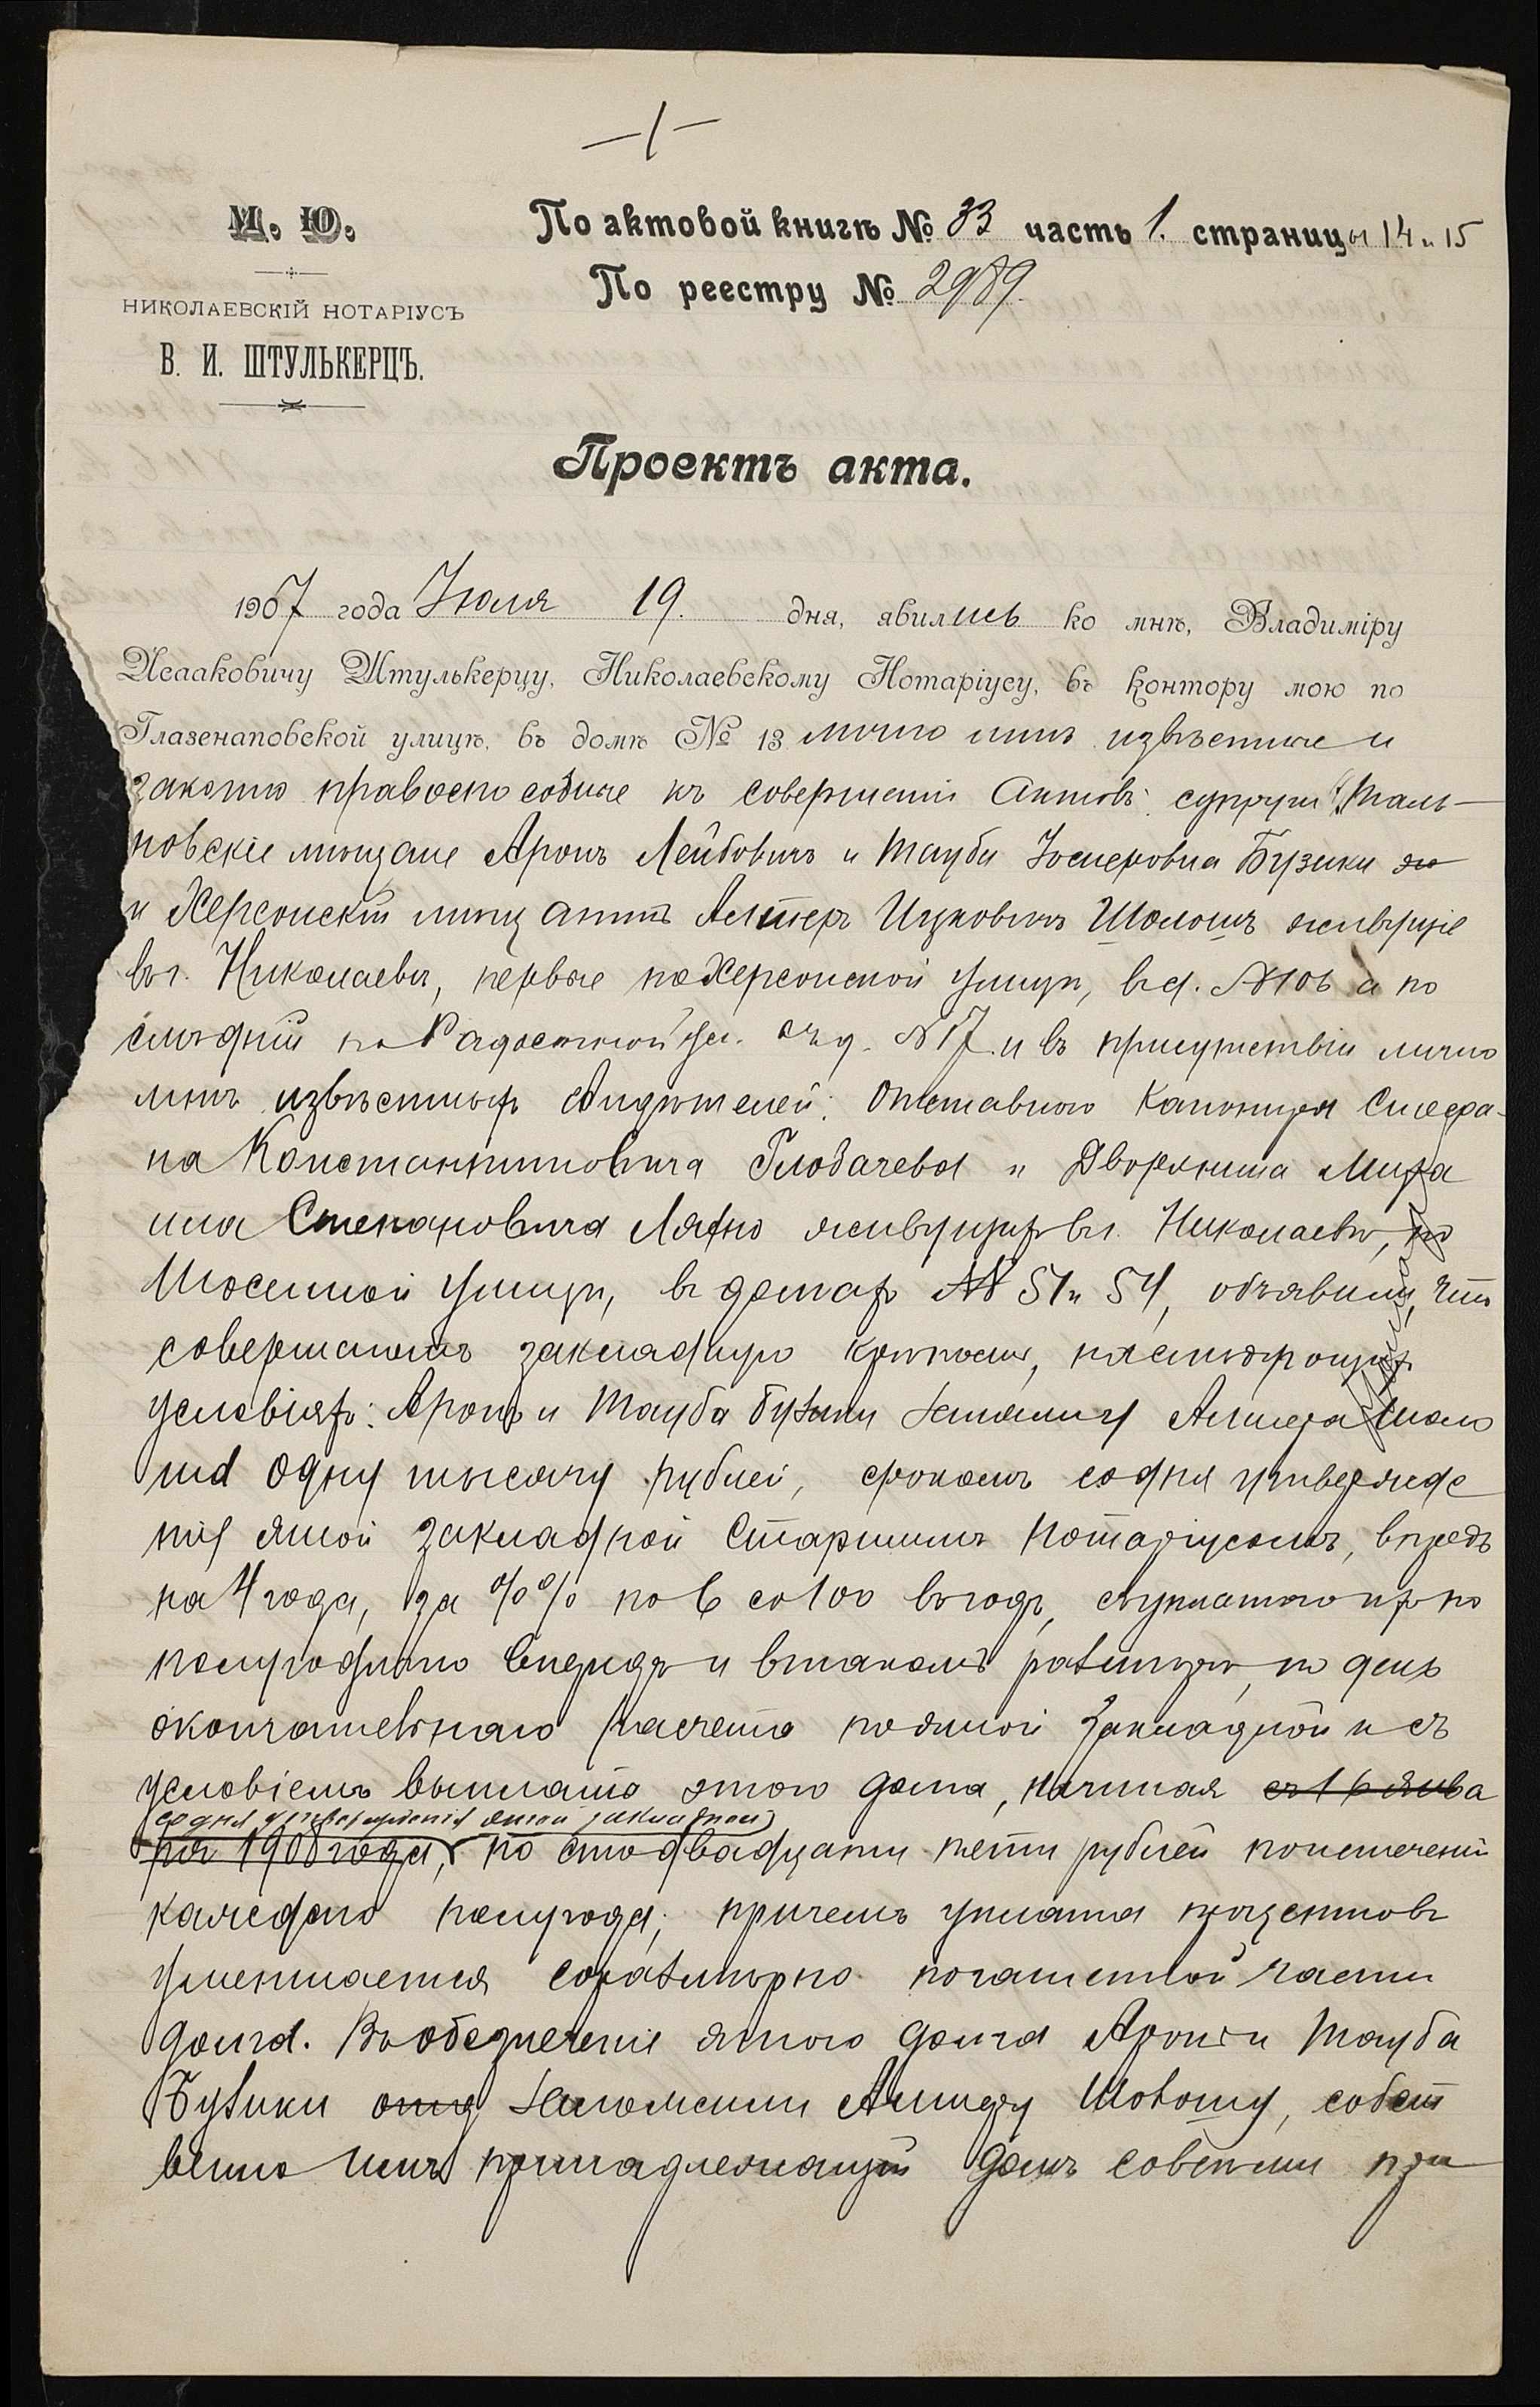 —1—
М. Ю.
НИКОЛАЕВСКІЙ НОТАРІУСЪ
В. И. ШТУЛЬКЕРЦЪ.
По актовой книгѣ № 33 часть 1. страницы 14 и 15
По реестру № 2989.
Проектъ акта.
1907 года Іюля 19. дня, явились ко мнѣ, Владиміру
Исааковичу Штулькерцу, Николаевскому Нотаріусу, въ контору мою по
Глазенаповской улицѣ, въ домѣ № 13 лично мнѣ извѣстные и
законно правоспособные къ совершенію Актовъ: супруги Таль-
новскіе мѣщане Аронъ Лейбовичъ и Тауба Іосиповна Бузики
и Херсонскій мѣщанинъ Алтеръ Ицковичъ Шолошъ живущіе
въ г. Николаевѣ, первые по Херсонской улицѣ, в д. № 106 а по
слѣдній по Радостной ул. въ д. № 17. и въ присутствіи лично
мнѣ извѣстныхъ свидѣтелей: Отставного Капитана Стефа-
на Константиновича Глобачева и Дворянина Миха
ила Степановича живущихъ въ г. Николаевѣ, по
улицѣ, в домахъ №№ 51 и 54, объявили, что
совершаютъ закладную крѣпость, на слѣдующихъ
условіяхъ: Аронъ и Тауба Бузики заняли у Алтера Шоло
ша Одну тысячу рублей, срокомъ со дня утвержде
нія этой закладной Старшимъ Нотаріусомъ, впредь
на 4 года, за %% по 6 со 100 въ годъ, съ уплатою ихъ по
полугодно впередъ и в такомъ размѣрѣ, по день
окончательнаго расчета по этой закладной и съ
условіемъ выплаты этого долга, начиная съ 16 Янва
со дня утвержденія этой закладной
ря 1908 года, по сто двадцати пяти рублей по истеченіи
каждаго полугода; причемъ уплата процентовъ
уменьшается соразмѣрно погашенной части
долга. Въ обезпеченіе этого долга Аронъ и Тауба
Бузики заложили Алтеру Шолошу, собст
венно имъ принадлежащій домъ со всѣми при